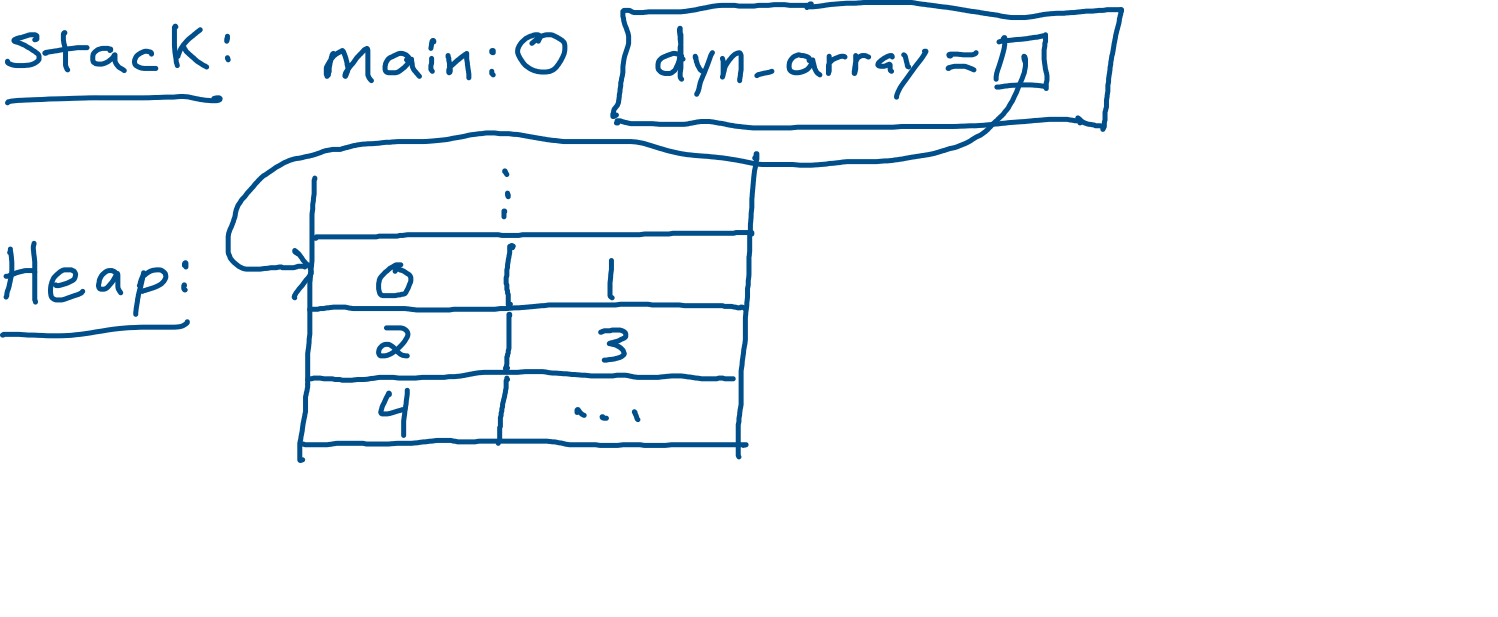 Stack: main: 0 dyn_array =
⋮
Heap: 0 1
2 3
4 ...